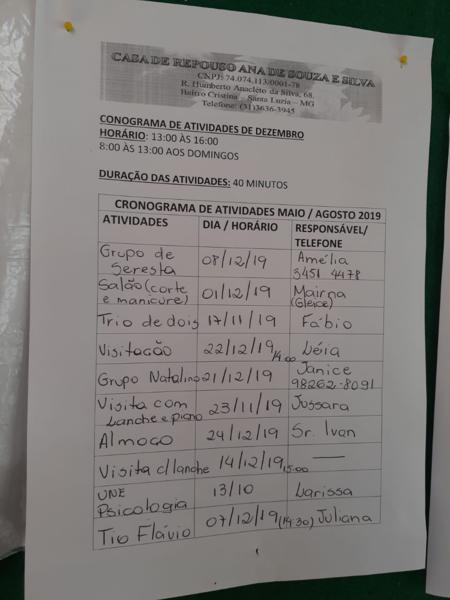 CASA DE REPOUSO ANA DE SOUZA E SILVA
CNPJ: 74.074.113.0001-78
R. Humberto Anacleto da Silva, 68,
Bairro Cristina - Santa Luzia - MG
Telefone: (31)3636-3945
CONOGRAMA DE ATIVIDADES DE DEZEMBRO
HORÁRIO: 13:00 ÀS 16:00
8:00 ÀS 13:00 AOS DOMINGOS
DURAÇÃO DAS ATIVIDADES: 40 MINUTOS
CRONOGRAMA DE ATIVIDADES MAIO / AGOSTO 2019
ATIVIDADES DIA / HORÁRIO RESPONSÁVEL/
TELEFONE
Grupo de Seresta 08/12/19 Amélia 3451 4478
Salão (corte e manicure) 01/12/19 Mairna (Gleice)
Trio de dois 17/11/19 Fábio
Visitação 22/12/19 14:00 Léia
Grupo Natalino 21/12/19 Janice 98262-8091
Visita com Lanche e piano 23/11/19 Jussara
Almoço 24/12/19 Sr. Ivan
Visita c/lanche 14/12/19 15:00 —
UNE Psicologia 13/10 Larissa
Tio Flávio 07/12/19 (14:30) Juliana